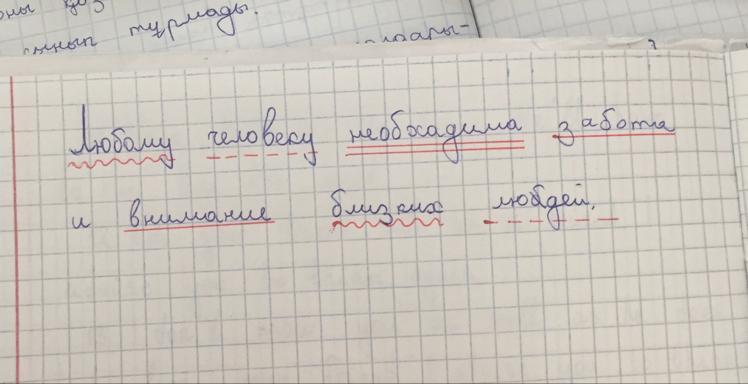 тұрмады.
Любому человеку необхадима забота
и внимание близких людей.